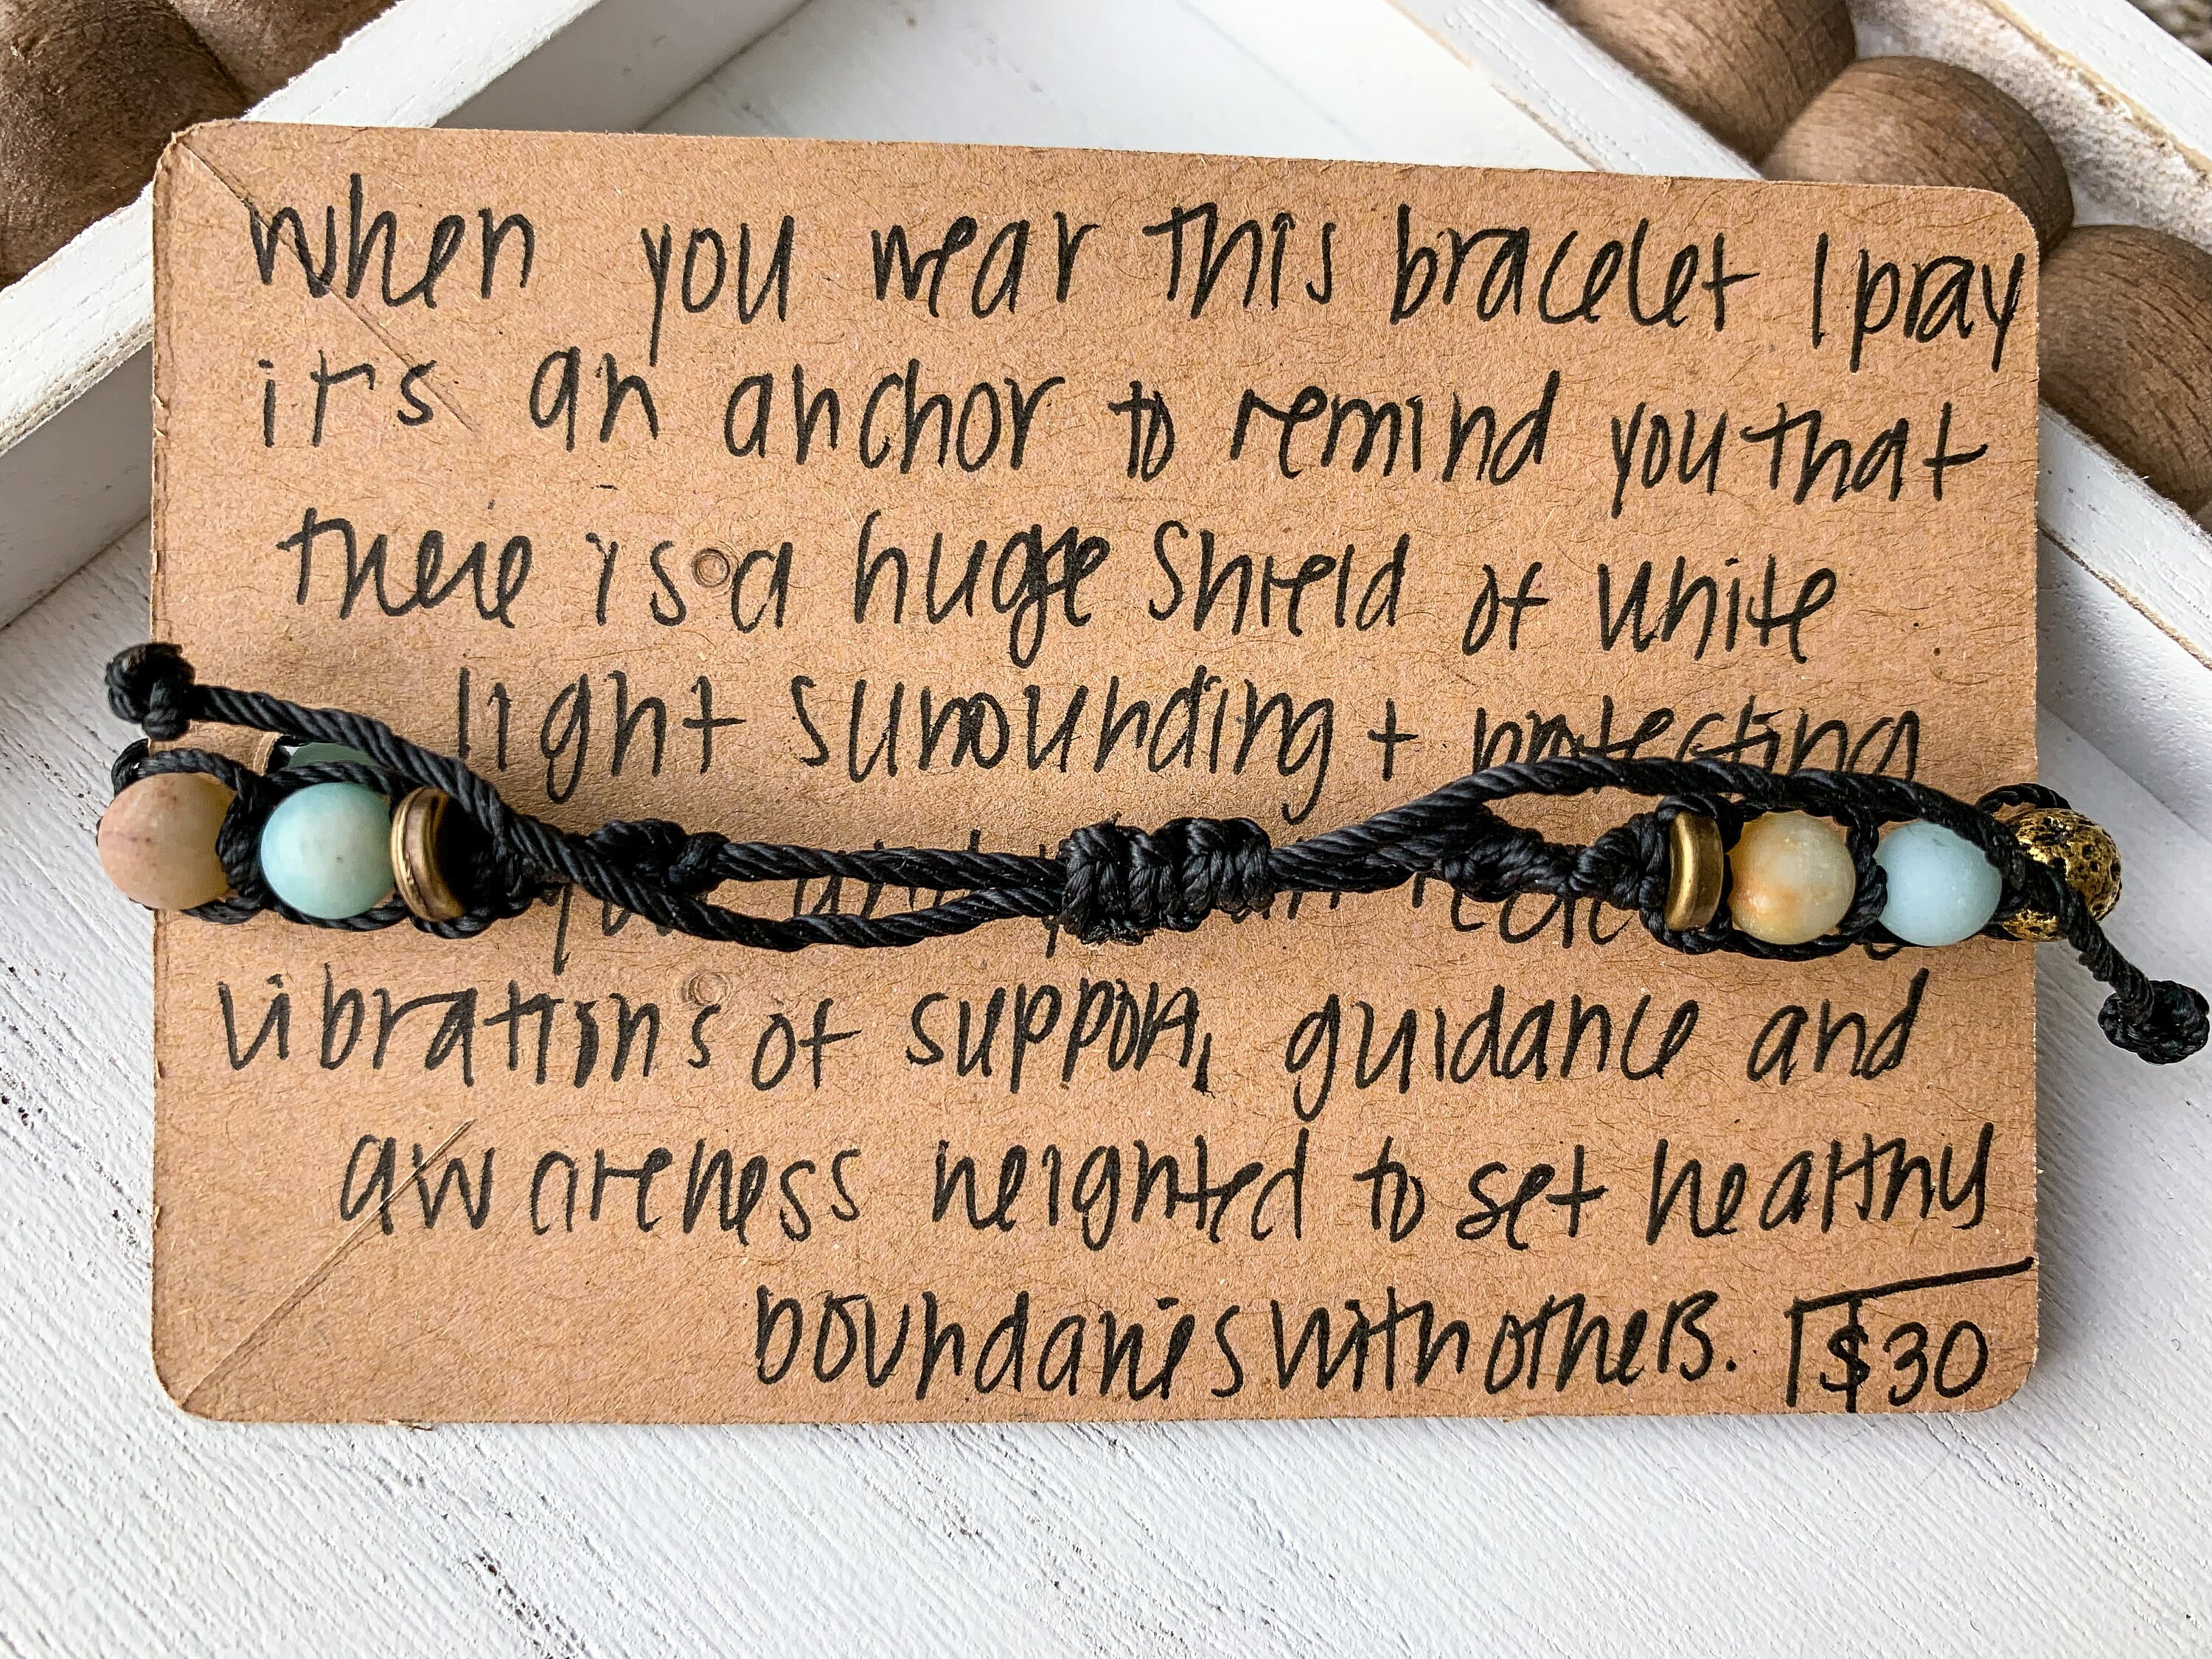 When you wear this bracelet I pray
it's an anchor to remind you that
there is a huge shield of white
light surrounding + protecting
vibrations of support, guidance and
awareness heighted to set healthy
boundaries with others. $30